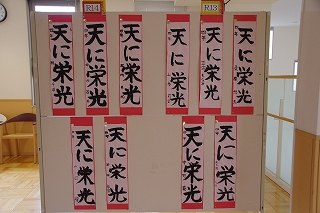 R14
R13
天に栄光
天に栄光
天に栄光
天に栄光
天に栄光
天に栄光
天に栄光
天に栄光
天に栄光
天に栄光